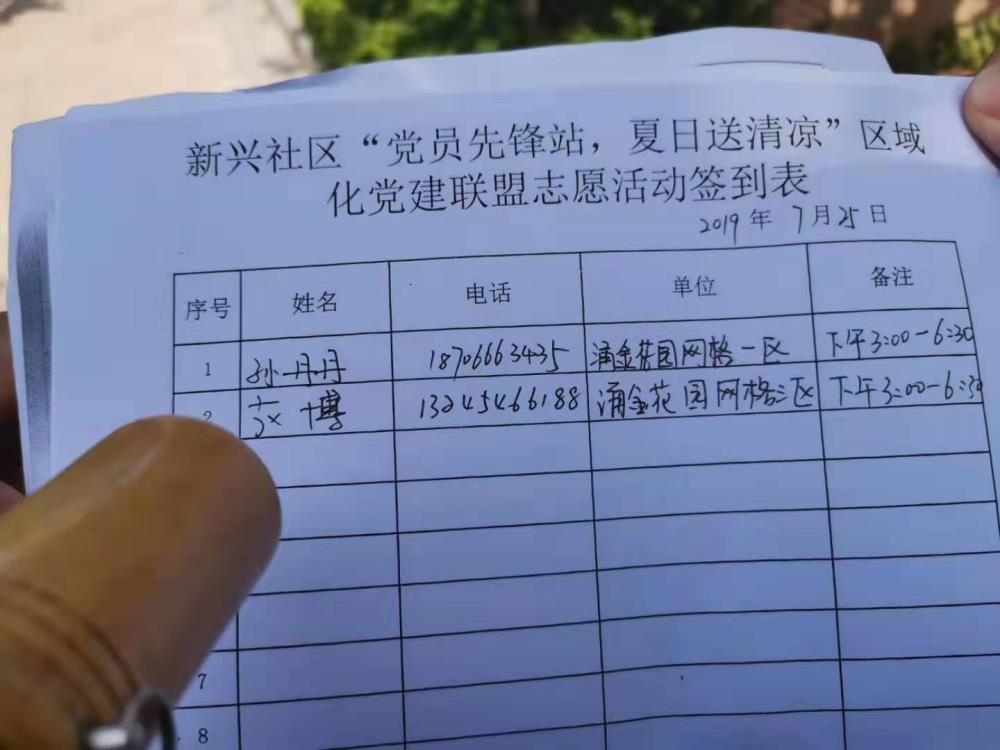 新兴社区“党员先锋站，夏日送清凉”区域
化党建联盟志愿活动签到表
2019年 7月25日
序号 姓名 电话 单位 备注
1 孙丹丹 18706663435 涌金花园网格一区 下午3:00-6:30
2 博 13245466188 涌金花园网格三区 下午3:00-6:30
7
8